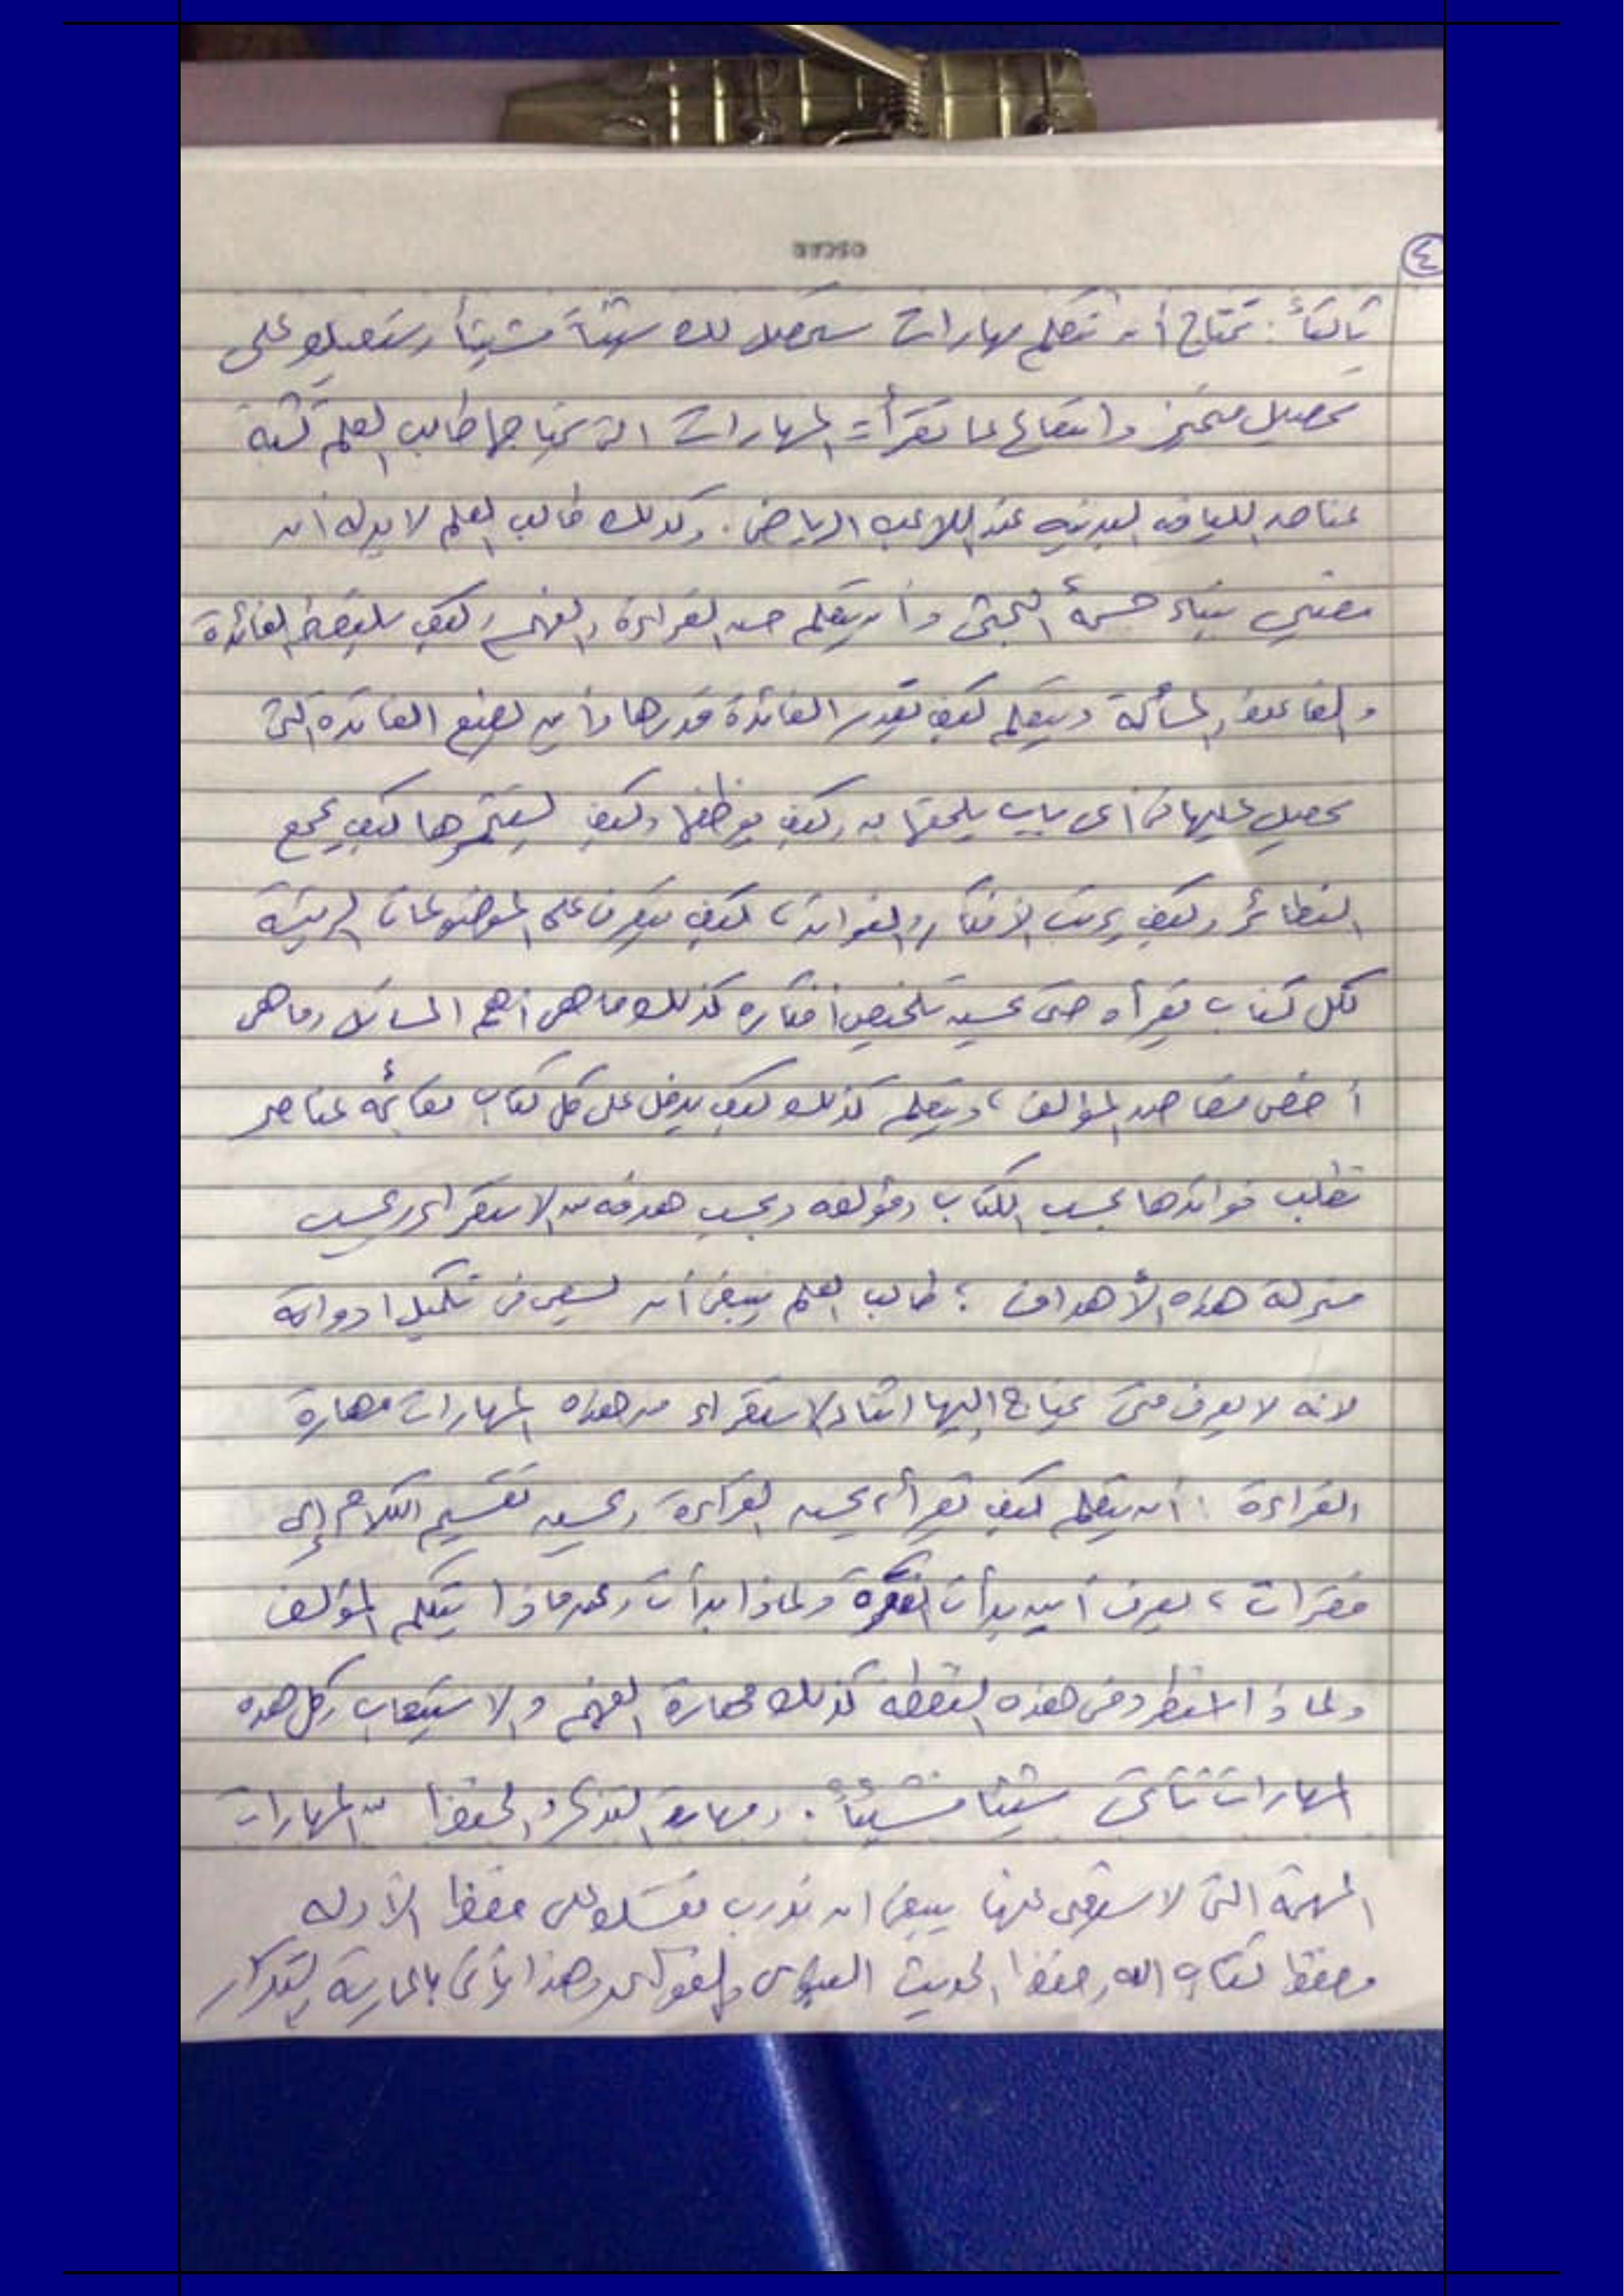 ٤
ثالثاً: تحتاج أن تتعلم مهارات ستحصل لك شيئاً فشيئاً وستعينك على
تحصيل متميز وانتفاع بما تقرأ = المهارات التي يحتاجها طالب العلم تشبه
عناصر اللياقه البدنيه عند اللاعب الرياضي . وكذلك طالب العلم لا بد له أن
يعتني ببناء حسه البحثي وأن يتعلم حسن القراءة والفهم وكيف يلتقط الفائدة
والقاعدة والمسألة ويتعلم كيف يقدر الفائدة قدرها وأين يضع الفائدة التي
يحصل عليها في أي باب يلحقها به وكيف يوظفها وكيف يستثمرها كيف يجمع
النظائر وكيف يرتب الأفكار والفوائد، كيف يتعرف على الموضوعات الرئيسة
لكل كتاب يقرأه حتى يحسن تلخيص أفكاره كذلك ما هي أهم المسائل وما هي
أخص مقاصد المؤلف، ويتعلم كذلك كيف يدخل على كل كتاب بقائمه عناصر
تطلب فوائدها بحسب الكتاب ومؤلفه وبحسب هدفه من الاستقراء وبحسب
منزلة هذه الأهداف ؛ طالب العلم ينبغي أن يسعى في تكميل ادواته
لانه لا يعرف متى يحتاج اليها اثناء الاستقراء من هذه المهارات مهارة
القراءة : أن يتعلم كيف يقرأ، يحسن القراءة ويحسن تقسيم الكلام إلى
فقرات، يعرف أين بدأت الفقرة ولماذا بدأت وعن ماذا يتكلم المؤلف
ولماذا استطرد في هذه النقطة كذلك مهارة الفهم والاستيعاب وكل هذه
المهارات تتأتى شيئاً فشيئاً . ومهارة التذكر والحفظ من المهارات
المهمة التي لا يستغنى عنها ينبغي ان تدرب نفسك على حفظ الأدله
وحفظ كتاب الله وحفظ الحديث النبوي وهذا يأتي بالممارسة بتكرار